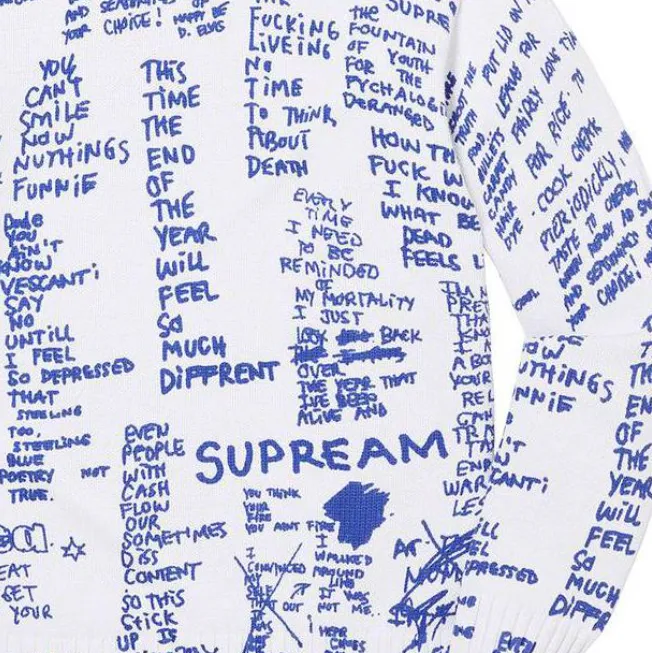 YOUR CHOICE! HAPPY BE
D. ELVIS
YOU
CAN'T
SMILE
NOW
NUTHiNGS
FUNNiE
Dude
YOU
AIN'T
KNOW
VESCANTi
SAY
NO
UNTILL
I FEEL
SO DEPRESSED
THAT
STEELING
TOO,
STEELING
BLUE
POETRY NOT
TRUE.
EAT
GET
YOUR
THIS
TIME
THE
END
OF
THE
YEAR
WiLL
FEEL
SO
MUCH
DiFFRENT
EVEN
PEOPLE
WITH
CASH
FLOW
OUR
SOMETIMES
DISS
CONTENT
SO THIS
STiCK
UP IS
FUCKING
LIVEING
NO
TIME
TO THINK
ABOUT
DEATH
SUPRE
THE
FOUNTAIN
OF YOUTH
FOR THE
PYCHALOGI
DERANGED
HOW TH
FUCK W
I KNOW
WHAT BE
DEAD
FEELS L
EVERY
TIME
I NEED
TO BE
REMINDED
OF
MY MORTALITY
I JUST
LOOK BACK
OVER
THE YEAR THAT
I'VE BEEN
ALIVE AND
SUPREAM
YOU THINK
YOUR
FIRE
YOU AINT FIRE
I
CONVINCED
MY
SELF
THAT
I
WALKED
AROUND
LIKE
OUT IT WAS
NOT ME.
I HEAR
I'M
PRE
THA
KNO
I A
ABO
YOUR
REL
CAN
TRA
END
WAR
LES
PUT LID ON
LEAVE FOR
FAIRLY LONG TIM
FOOD,
MULLETS
CARPET
CANDY
HAIR
DYE
FOR RICE. TO
COOK CHECK
PIERIODICKLY,
TASTE TO CHECK
WHEN READY AD
AND SEASONINGS OF
YOUR CHOICE!
OW
UTHiNGS
NNiE
N'T
CANTi
ILL
EL
PRESSED
TH
EN
OF
THE
YEAR
WiLL
FEEL
SO
MUCH
DiFFR
EVEN